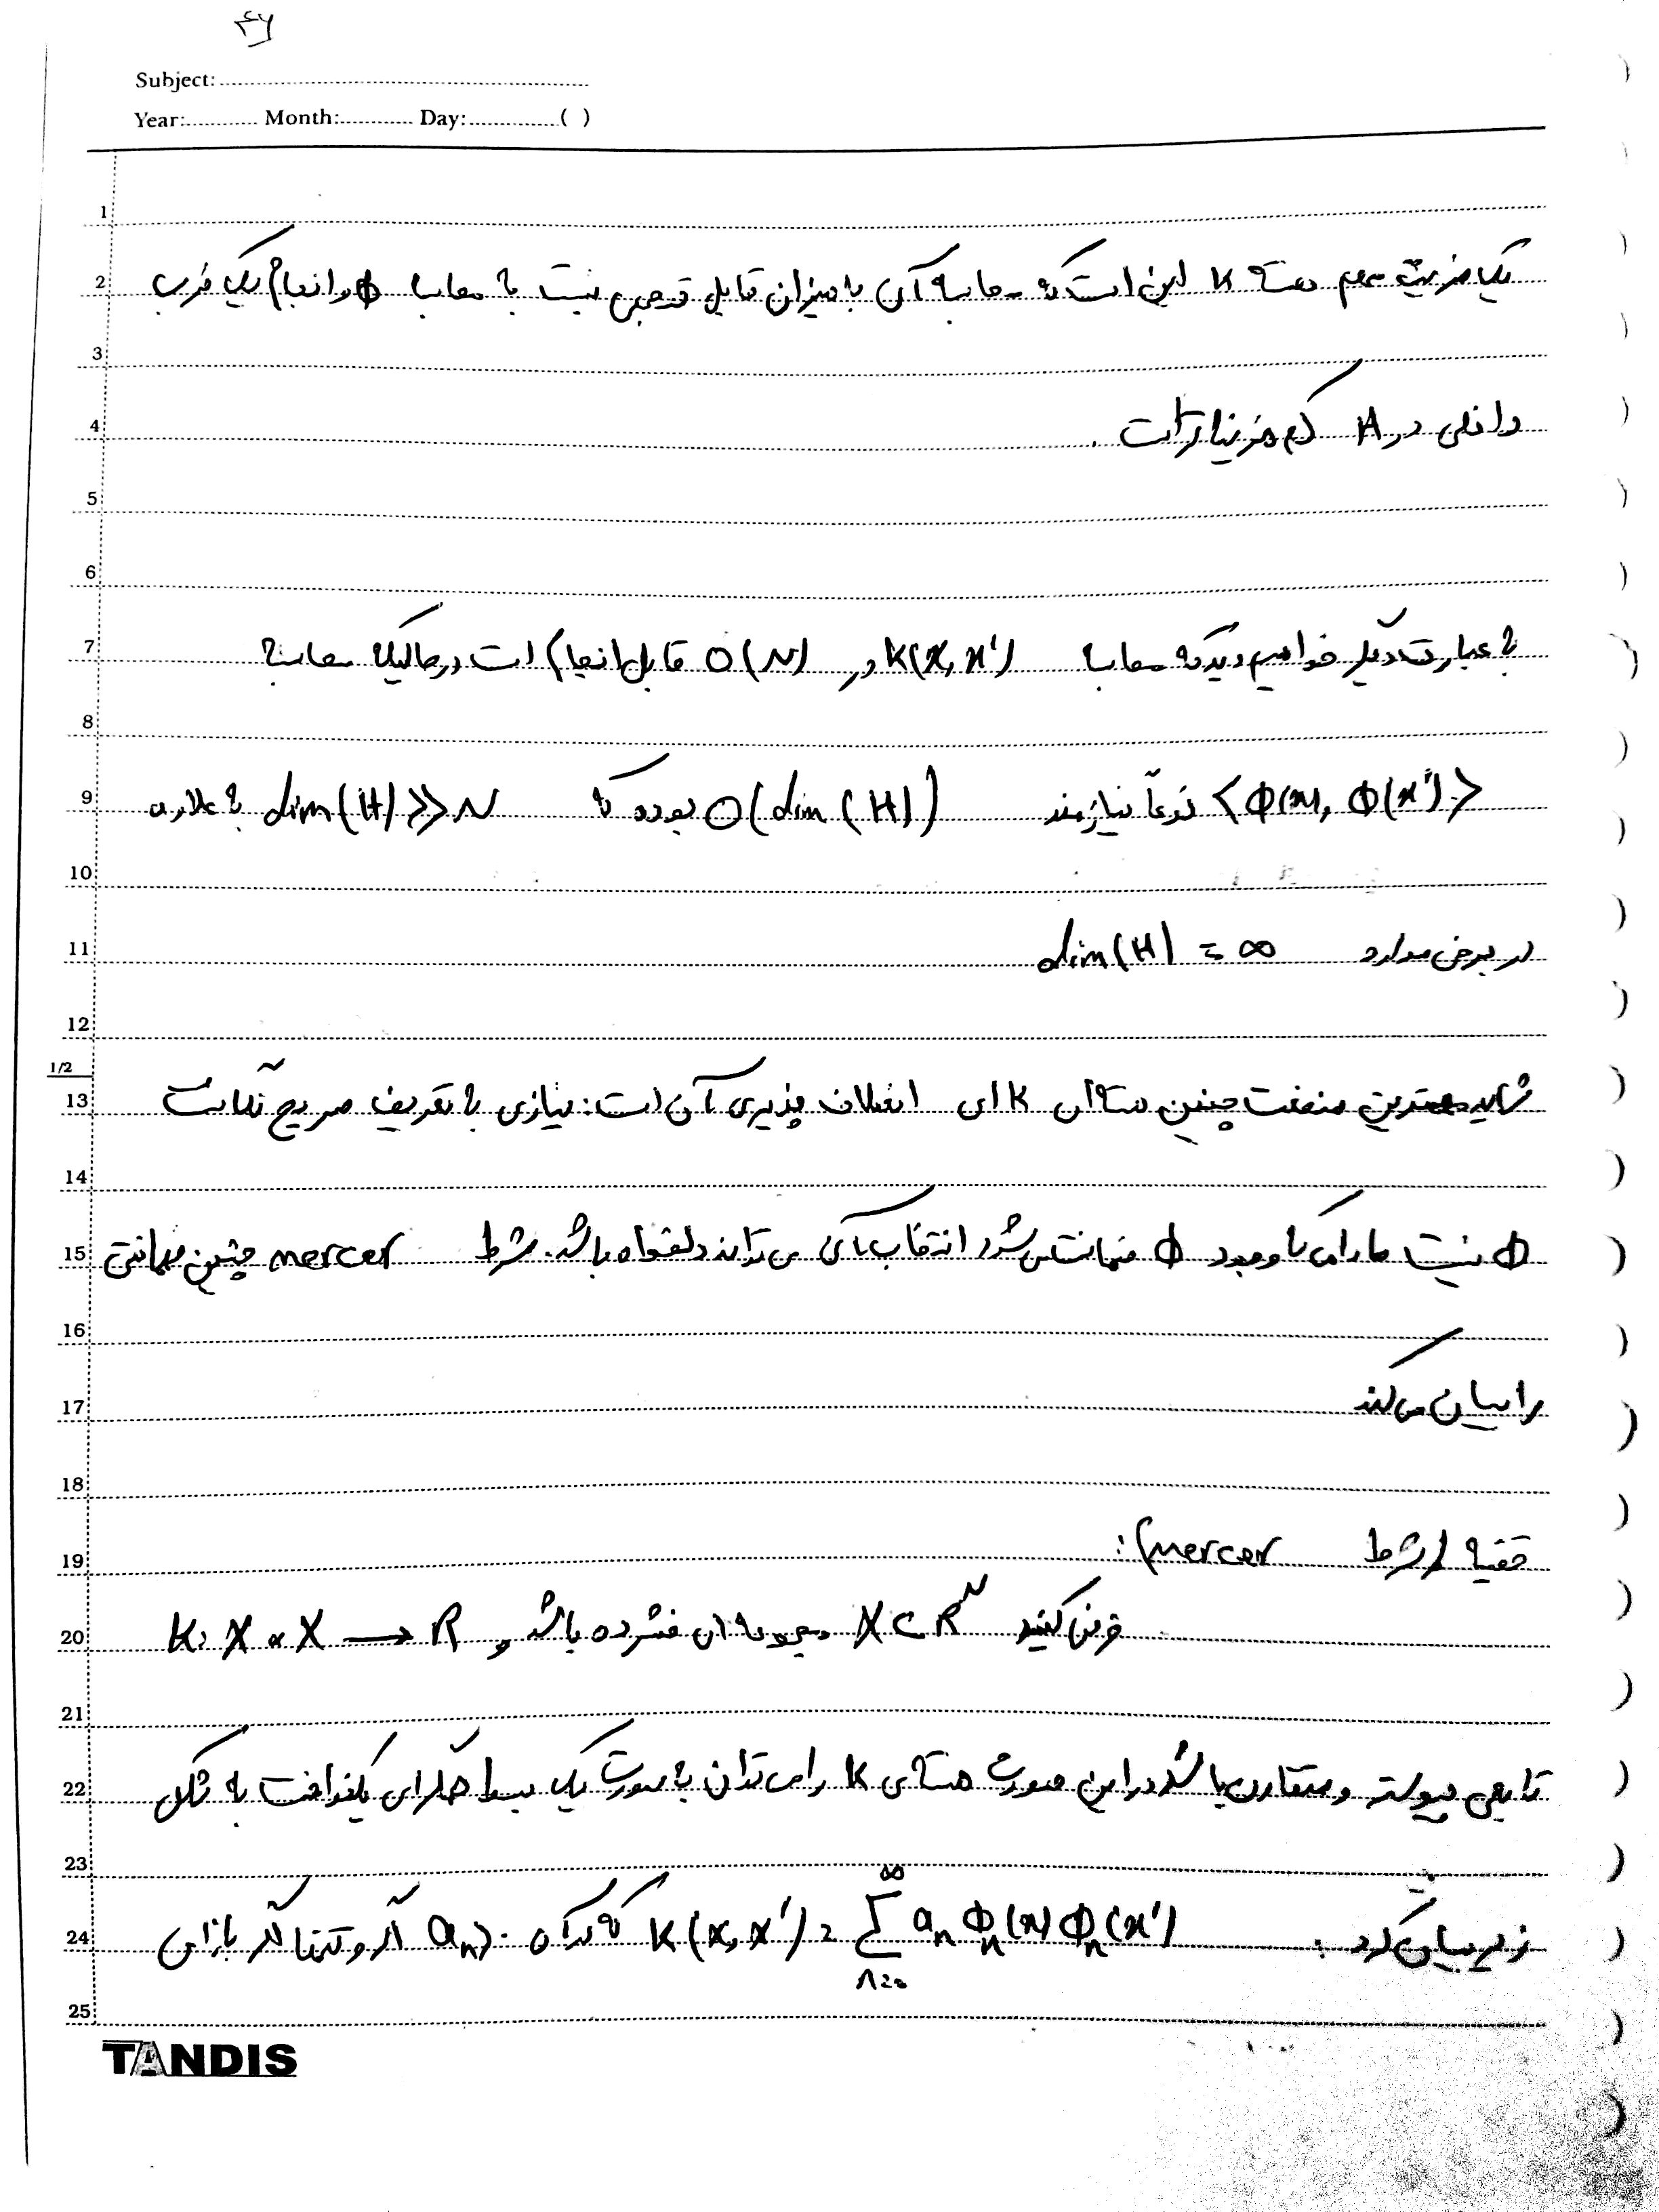 ۴۶
Subject:
Year: Month: Day: ( )
1
2 یک مزیت مهم هسته K این است که محاسبه آن به میزان قابل توجهی نسبت به محاسبه Φ و انجام یک ضرب
3
4 داخلی در H کم هزینه تر است .
5
6
7 به عبارت دیگر خواهیم دید که محاسبه K(x, x') در O(N) قابل انجام است در حالیکه محاسبه
8
9 <Φ(x), Φ(x')> نوعاً نیازمند O(dim(H)) بوده که dim(H) >> N به علاوه
10
11 در برخی موارد dim(H) = ∞
12
1/2
13 شاید مهمترین منفعت چنین هسته ای K ای انعطاف پذیری آن است: نیازی به تعریف صریح نگاشت
14
15 Φ نیست مادامی که وجود Φ ضمانت می شود انتخاب آن می تواند دلخواه باشد. شرط mercer چنین ضمانتی
16
17 را بیان می کند
18
19 قضیه (شرط mercer):
20 فرض کنید X ⊂ R^N مجموعه ای فشرده باشد و K: X × X → R
21
22 تابعی پیوسته و متقارن باشد در این صورت هسته ی K را می توان به صورت یک بسط همگرای یکنواخت به شکل
23
24 زیر بیان کرد : K(x, x') = ∑_{n=0}^{∞} a_n Φ_n(x) Φ_n(x') که در آن a_n > 0 اگر و تنها اگر به ازای
25
TANDIS